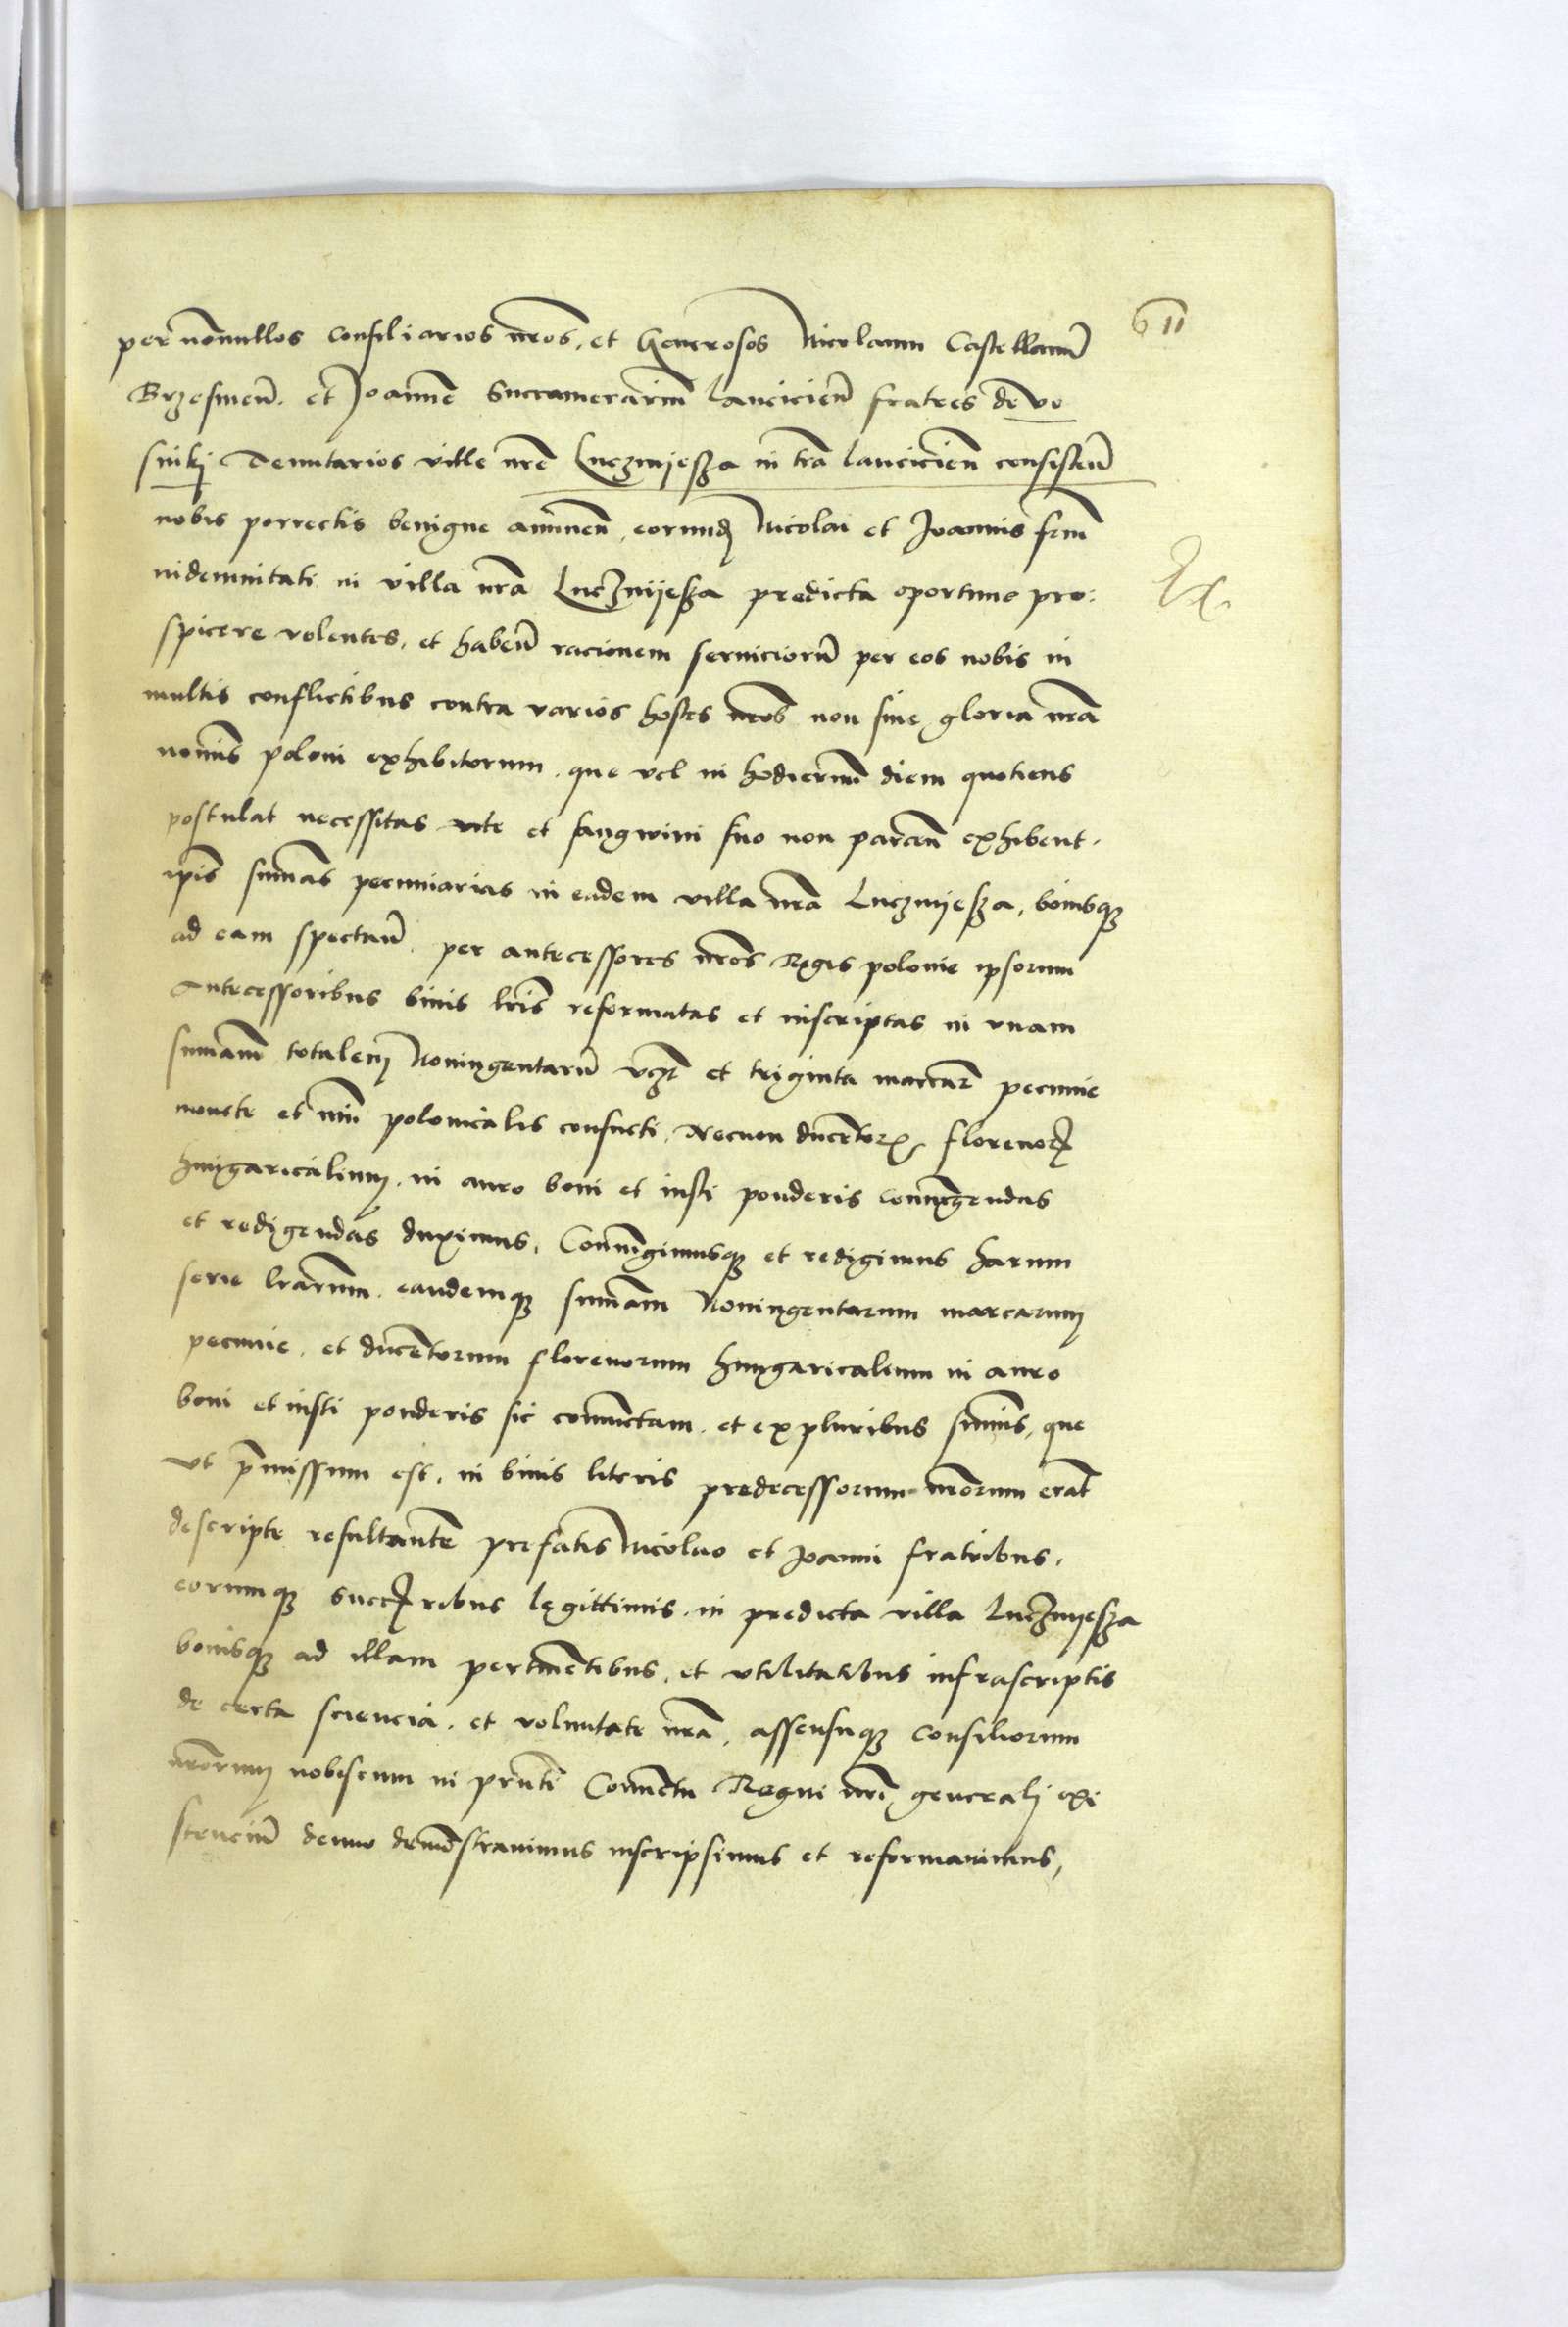 611
per nonnullos consiliarios nros, et Generosos Nicolaum Castellanu
Brzesinen. et Joanne Succamerariu lancicien fratres de vo
sniky Tenutarios ville nre Luczmijesza in tra lancicien consisten
nobis porrectis benigne annuen, eorundem Nicolai et Joannis frm
indemnitati in villa nra Luczmijesza predicta oportune pro:
spicere volentes, et haben racionem serviciorum per eos nobis in
multis conflictibus contra varios hostes nros non sine gloria nra
nominis poloni exhibitorum, que vel in hodiernu diem quotiens
postulat necessitas vite et sangwini suo non parcen exhibent.
ipis summas pecuniarias in eadem villa nra Luczmijesza, bonisque
ad eam spectan. per antecessores nros Reges polonie ipsorum
antecessoribus binis lris reformatas et inscriptas in unam
summam totalem Noningentaru vczt et triginta marcar pecunie
monete et nui polonicalis consueti, Necnon ducentor florenor
hungaricalium, in auro boni et iusti ponderis coniungendas
et redigendas duximus, Coniungimusque et redigimus harum
serie lrarum, eandemque summam Noningentarum marcarum
pecunie, et ducentorum florenorum hungaricalium in auro
boni et iusti ponderis sic coniunctam, et ex pluribus summis, que
ut pmissum est, in binis literis predecessorum nrorum erat
descripte resultantem prefatis Nicolao et Joanni fratribus,
eorumque succribus legittimis, in predicta villa Luczmijesza
bonisque ad illam pertinentibus, et utilitatibus infrascriptis
de certa sciencia, et voluntate nra, assensuque consiliorum
nrorum nobiscum in prnti Conventu Regni nri generali exi
stenciu denuo demonstravimus inscripsimus et reformavimus,